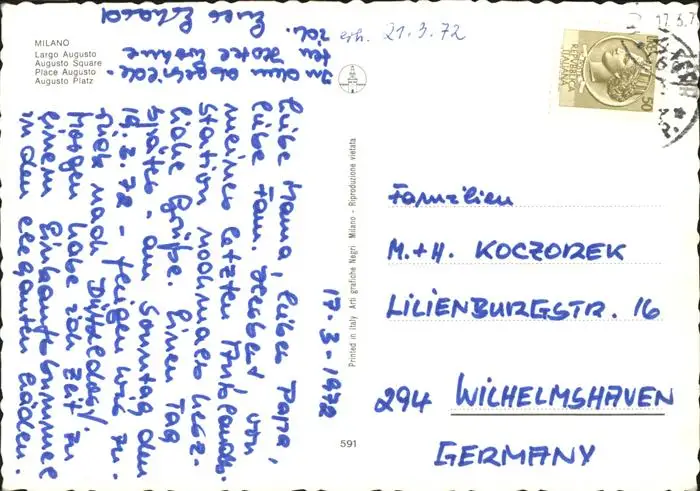 MILANO
Largo Augusto
Augusto Square
Place Augusto
Augusto Platz
erh. 21.3.72
17.3.7
REPUBBLICA
ITALIANA
50
17.3-1972
Liebe Mama, lieber Papa,
liebe Fam. Herbert, von
meiner letzten Auslands-
station nochmals herz-
liche Grüße. Einen Tag
später - am Sonntag den
19.3.72 - fliegen wir zu-
rück nach Düsseldorf.
Morgen habe ich Zeit zu
einem Einkaufsbummel
in den eleganten Läden.
In dem abgebilde-
ten Hotel wohne
ich.
Euer
Printed in Italy Arti grafiche Negri Milano - Riproduzione vietata
591
Familien
M.+H. KOCZOREK
LILIENBURGSTR. 16
294 WILHELMSHAVEN
GERMANY